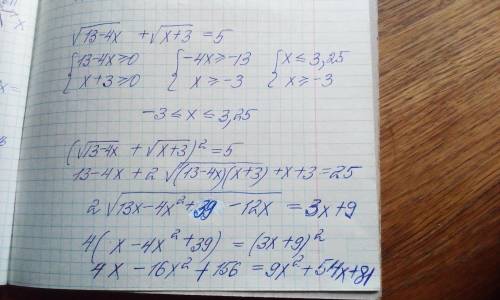 √13-4x + √x+3 = 5
{13-4x≥0 {-4x≥-13 {x≤3,25
{x+3≥0 {x≥-3 {x≥-3
-3≤x≤3,25
(√13-4x + √x+3)² = 5
13-4x+2√(13-4x)(x+3) + x+3 = 25
2√13x-4x²+39-12x = 3x+9
4(x-4x²+39) = (3x+9)²
4x-16x²+156 = 9x²+54x+81